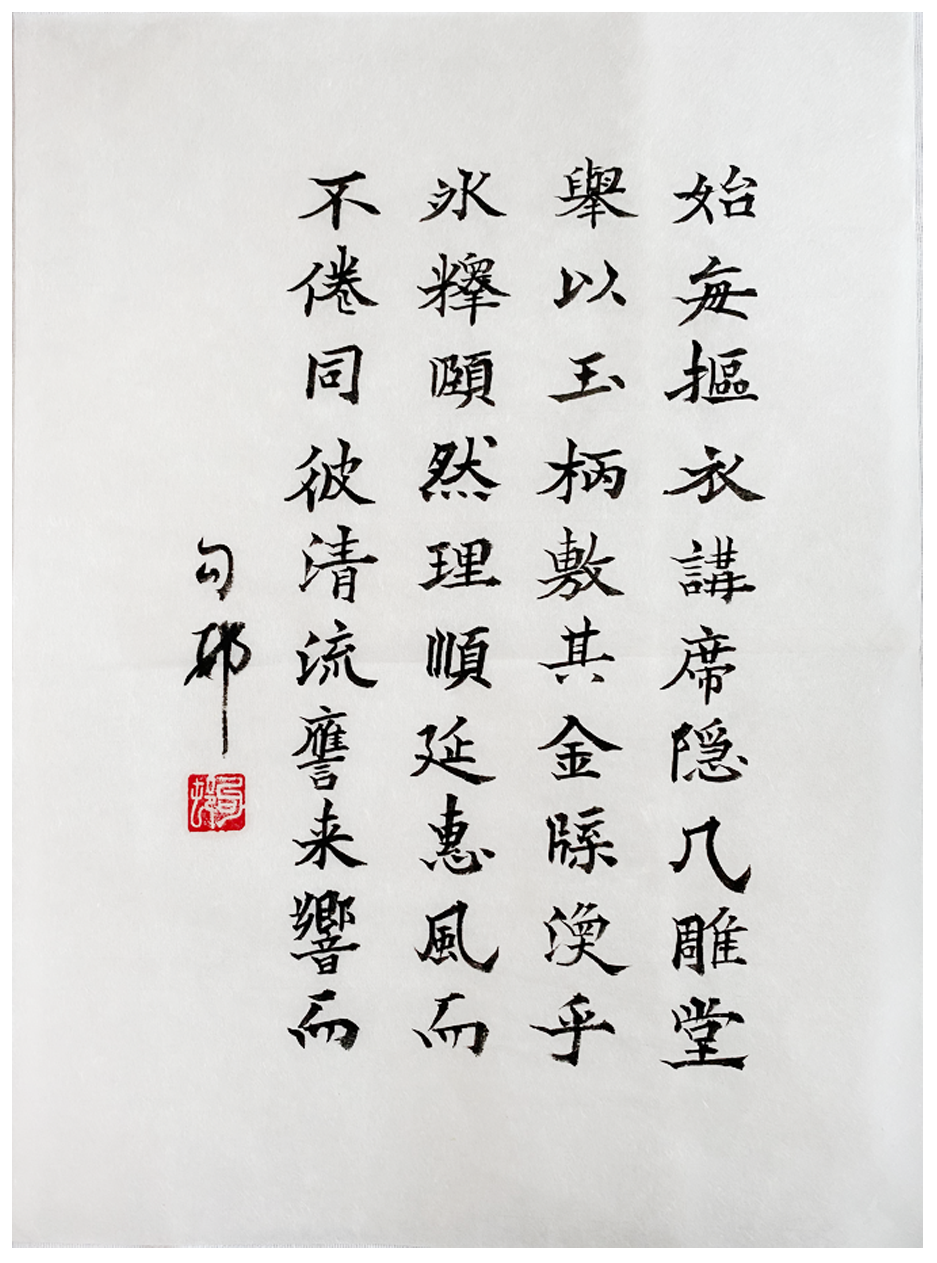 始每摳衣講席隐几雕堂
舉以玉柄敷其金牒渙乎
氷釋頤然理順延惠風而
不倦同彼清流譍来響而